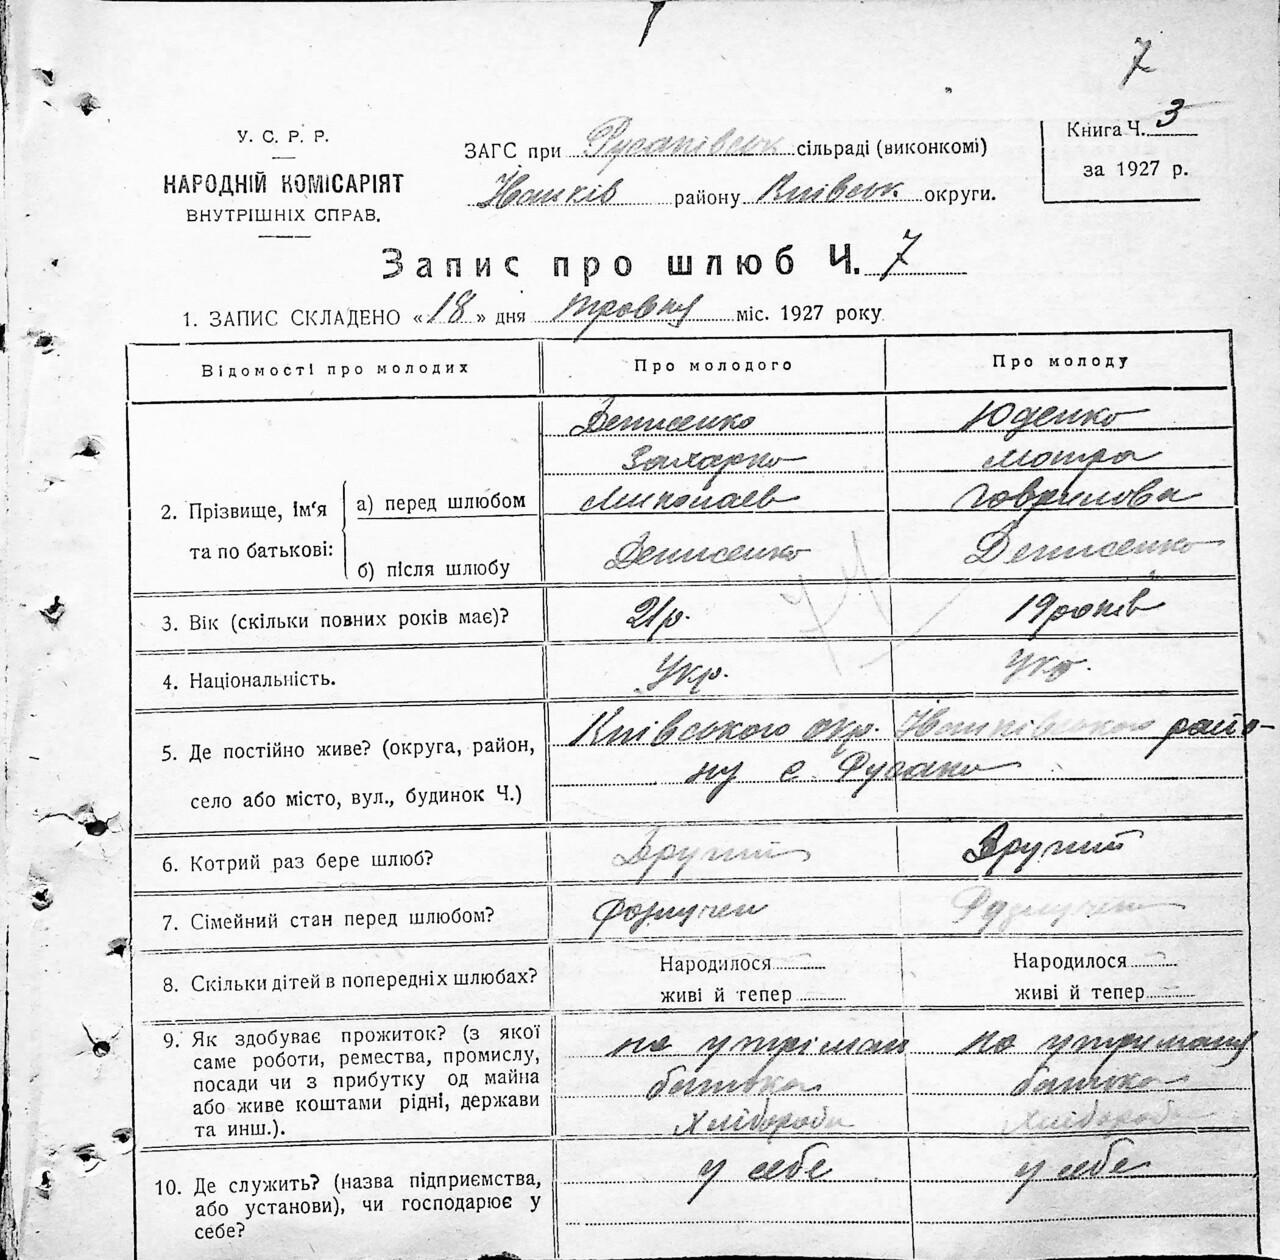 7
У. С. Р. Р.
НАРОДНІЙ КОМІСАРІЯТ
ВНУТРІШНІХ СПРАВ.
ЗАГС при Русанівськ сільраді (виконкомі)
району Київськ округи.
Книга Ч. 3
за 1927 р.
Запис про шлюб Ч. 7
1. ЗАПИС СКЛАДЕНО «18» дня травня міс. 1927 року
Відомості про молодих Про молодого Про молоду
2. Прізвище, ім'я та по батькові:
а) перед шлюбом
Денисенко Юденко
Захарко Мотра
Миколаєв Гаврилова
б) після шлюбу Денисенко Денисенко
3. Вік (скільки повних років має)? 21 р. 19 років
4. Національність. Укр. Укр.
5. Де постійно живе? (округа, район, Київського окр. райо-
село або місто, вул., будинок Ч.) ну с. Русанів
6. Котрий раз бере шлюб? Другий Другий
7. Сімейний стан перед шлюбом? Розлучен Розлучен
8. Скільки дітей в попередніх шлюбах? Народилося Народилося
живі й тепер живі й тепер
9. Як здобуває прожиток? (з якої на утріман на утриманя
саме роботи, ремества, промислу,
посади чи з прибутку од майна батька батька
або живе коштами рідні, держави Хлібороби Хлібороб
та инш.).
10. Де служить? (назва підприємства, у себе у себе
або установи), чи господарює у
себе?